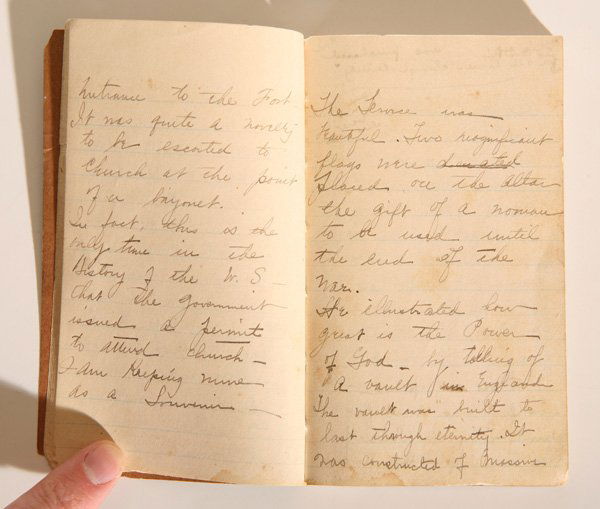 Entrance to the Fort.
It was quite a novelty
to be escorted to
Church at the point
of a bayonet.
In fact, this is the
only time in the
History of the U.S.—
that the government
issued a permit
to attend Church—
I am keeping mine
as a Souvenir—
The Service was
beautiful. Two magnificent
flags were donated
placed on the altar
the gift of a woman
to be used until
the end of the
War.
He illustrated how
great is the Power
of God— by telling of
a vault in England
The vault was" built to
last through eternity. It
was constructed of massive